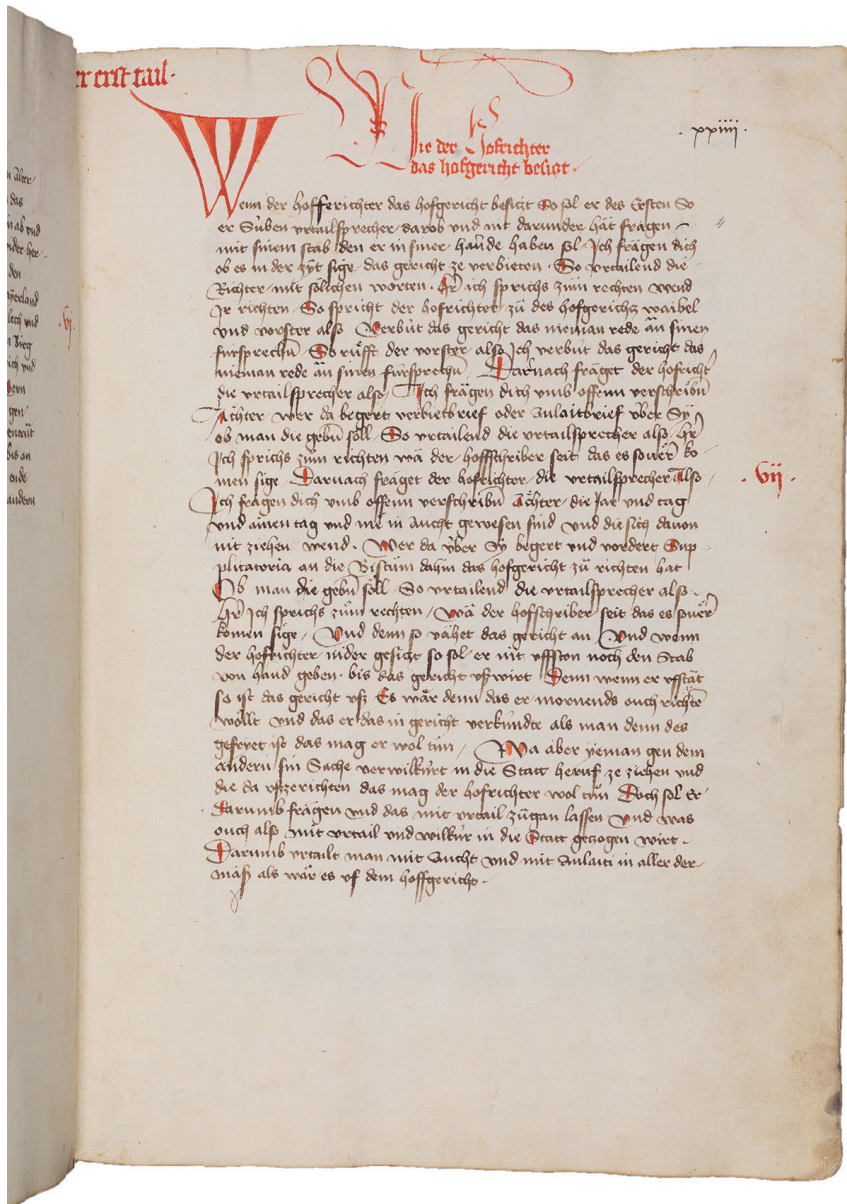 er erst tail.
xxiiii
Wie der Hofrichter
das hofgericht besitzt.
Wenn der hofferichter das hofgericht besitzt So sol er des Ersten So
er Siben vrtailsprecher darob vnd nit darunder hät frägen
mit sinem stab den er in siner hande haben sol Ich frägen dich
ob es in der zyt sige das gericht ze verbieten. So vrtailend die
Richter mit sölichen worten. Her ich sprichs zům rechten wend
Ir richten So spricht der hofrichter zů des hofgerichz waibel
vnd vorster also Verbüt das gericht das nieman rede än sinen
fürsprechn̄ So růfft der vorster also Ich verbüt das gericht das
nieman rede än sinen fürsprechn̄ Darnach fräget der hofricht̄
die vrtailsprecher also Ich frägen dich vmb offenn verschribn̄
Ächter wer da begert verbietbrief oder Anlaitbrief vber Sy
ob man die gebn̄ soll So vrtailend die vrtailsprecher also Her
Ich sprichs zům richten wä der hoffschriber seit das es souer ko
men sige Darnach fräget der hofrichter die vrtailsprecher Also
vij
Ich frägen dich vmb offenn verschribn̄ Ächter die Jar vnd tag
vnd ainen tag vnd me in Aucht gewesen sind vnd die sich dauon
nit ziehen wend. Wer da vber Sy begert vnd vordert Sup
plicatoria an die Bistum dahin das hofgericht zů richten hat
Ob man die gebn̄ soll So vrtailend die vrtailsprecher also.
Her Ich sprichs zům rechten wä der hofschriber seit das es souer
komen sige Vnd denn so vähet das gericht an Vnd wenn
der hofrichter nider gesitzt so sol er nit vffston noch den Stab
von hand geben bis das gericht vß wirt Denn wenn er vfstät
so ist das gericht vsz Es wär denn das er mornends ouch richtē
wöllt vnd das er das in gericht verkündte als man denn des
gefryet ist das mag er wol tůn Wa aber yeman gen dem
andern sin Sache verwilkürt in die Statt heruf ze ziehen vnd
die da vszerichten das mag der hofrichter wol tůn Doch sol Er
darumb frägen vnd das mit vrtail zůgan lassen Vnd was
ouch also mit vrtail vnd wilkür in die Statt gezogen wirt.
Darumb vrtailt man mit Aucht vnd mit Anlaiti in aller der
mäß als wär es vf dem hoffgericht.